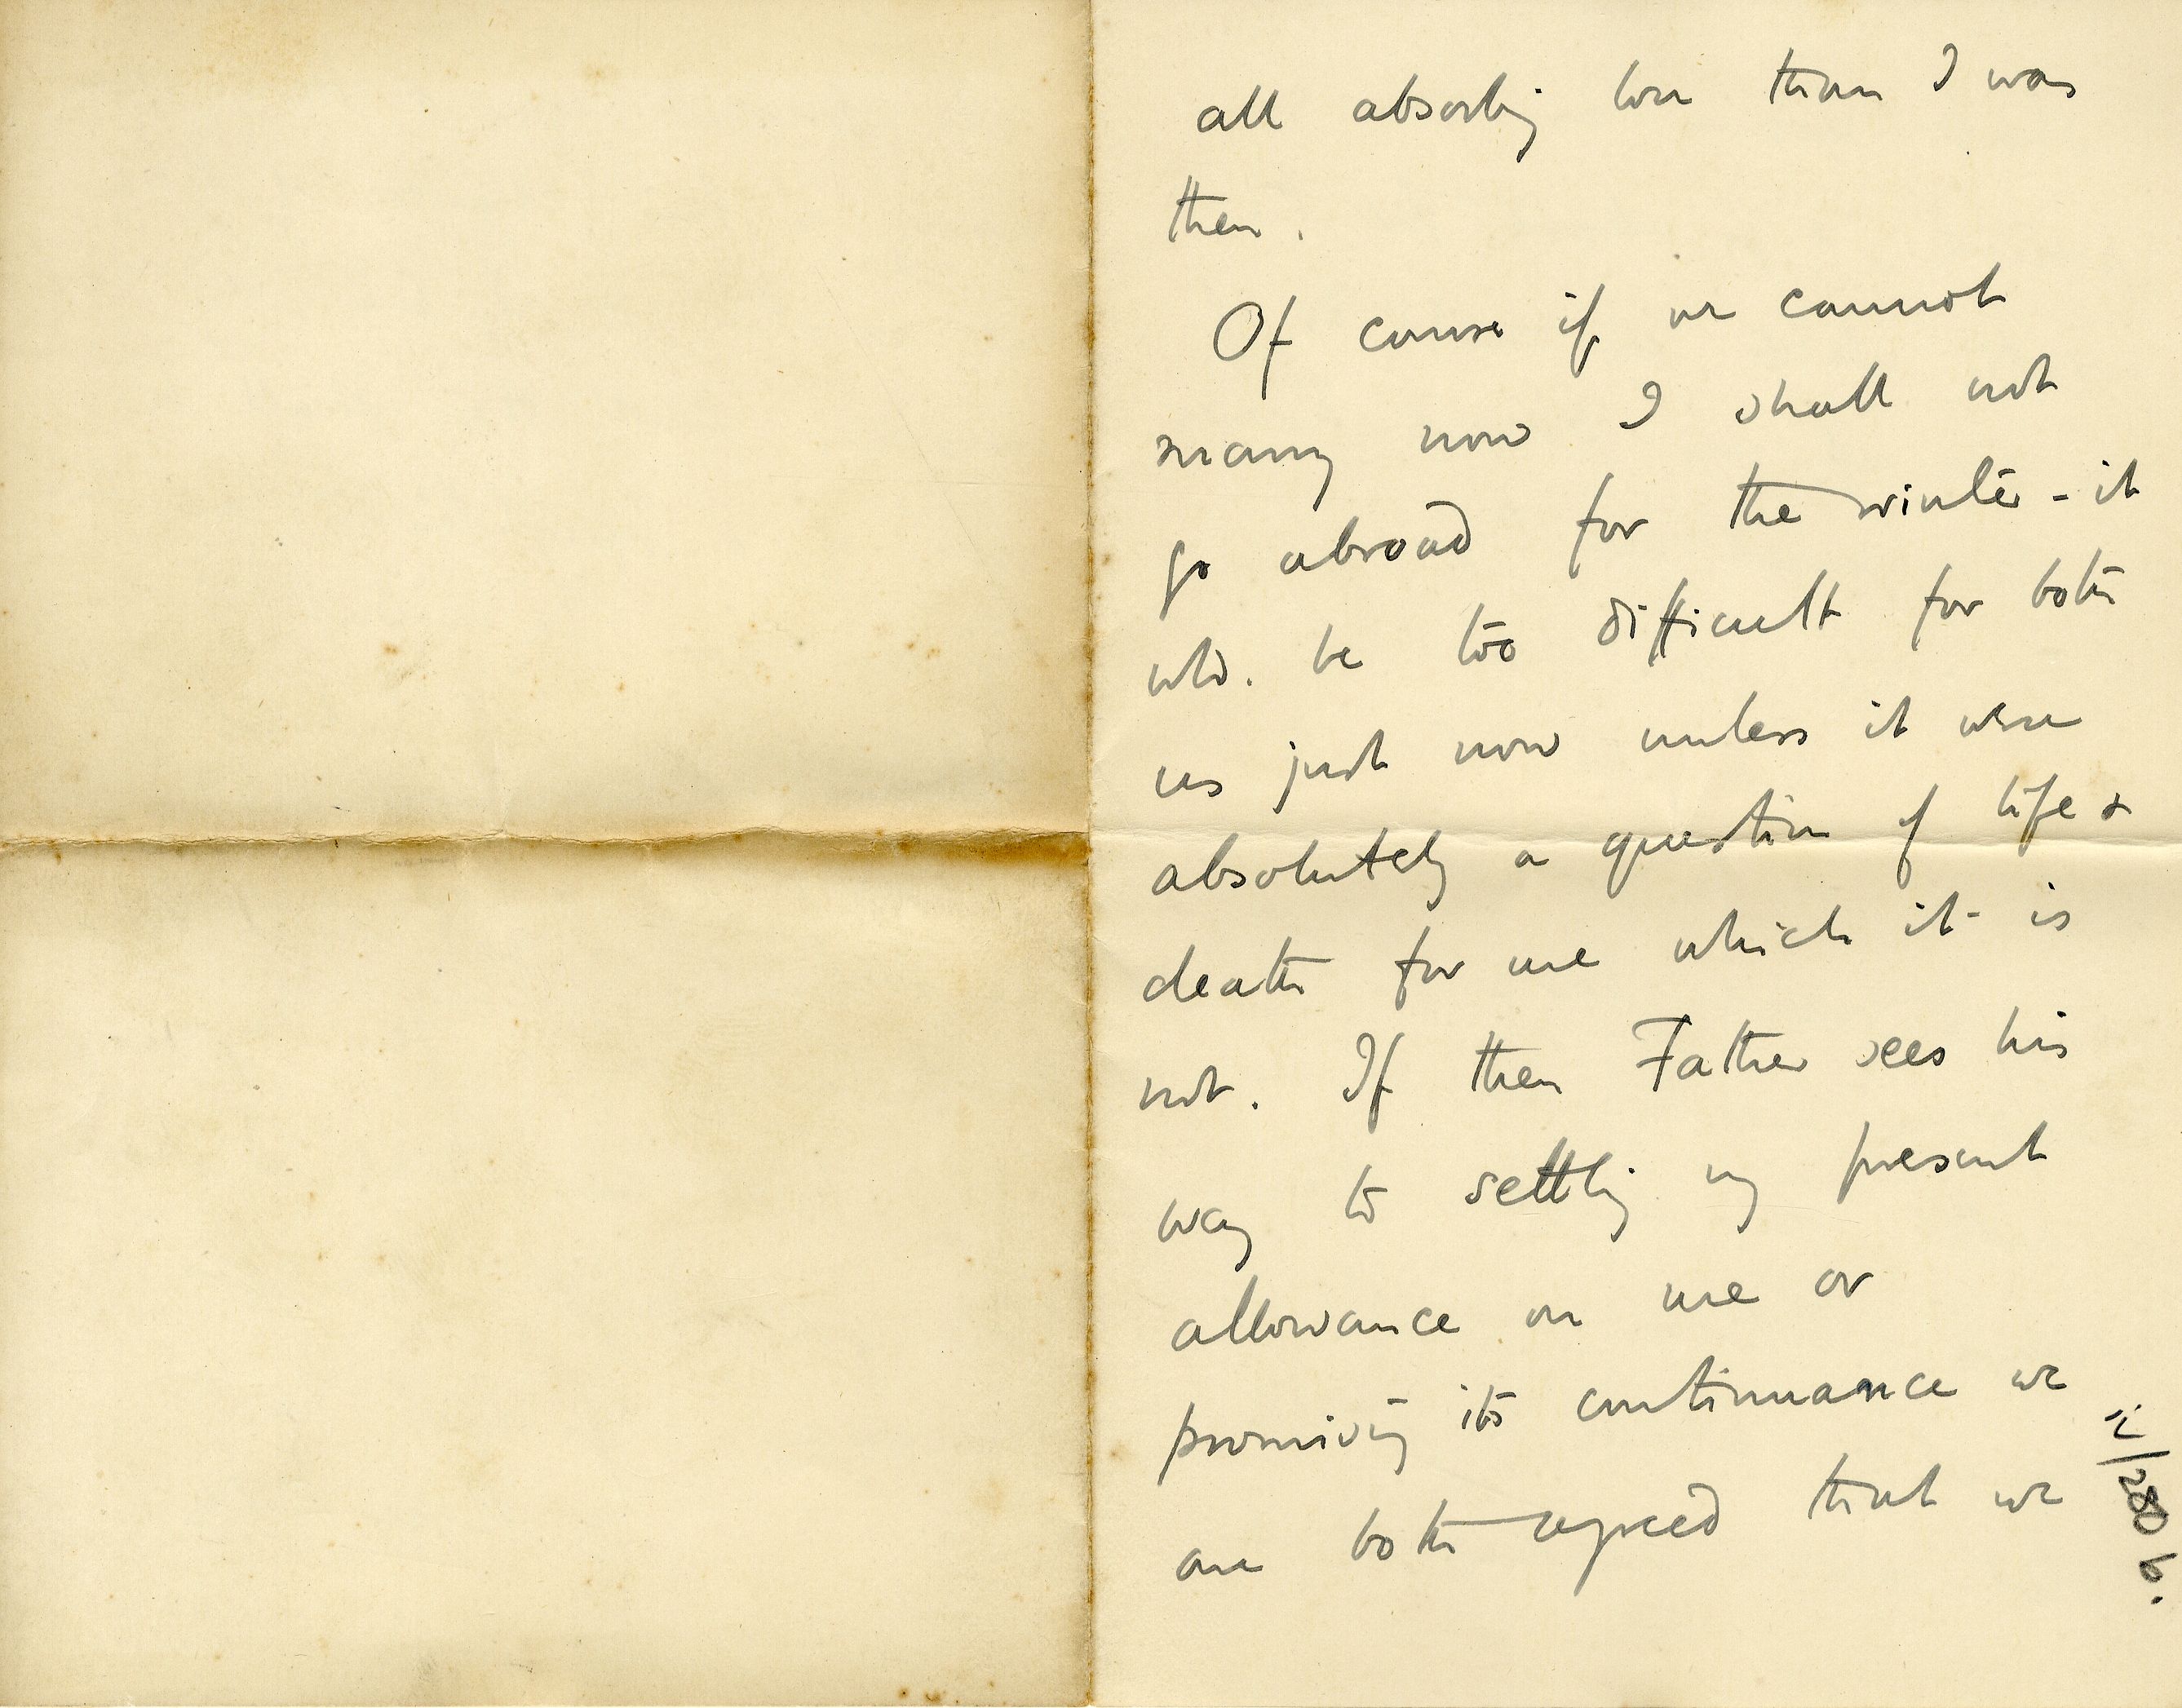 all absorbing love than I was
then.
Of course if we cannot
marry now I shall not
go abroad for the winter - it
wld. be too difficult for both
us just now unless it were
absolutely a question of life &
death for me which it is
not. If then Father sees his
way to settling my present
allowance on me or
promising its continuance we
are both agreed that we
ii/280 b.